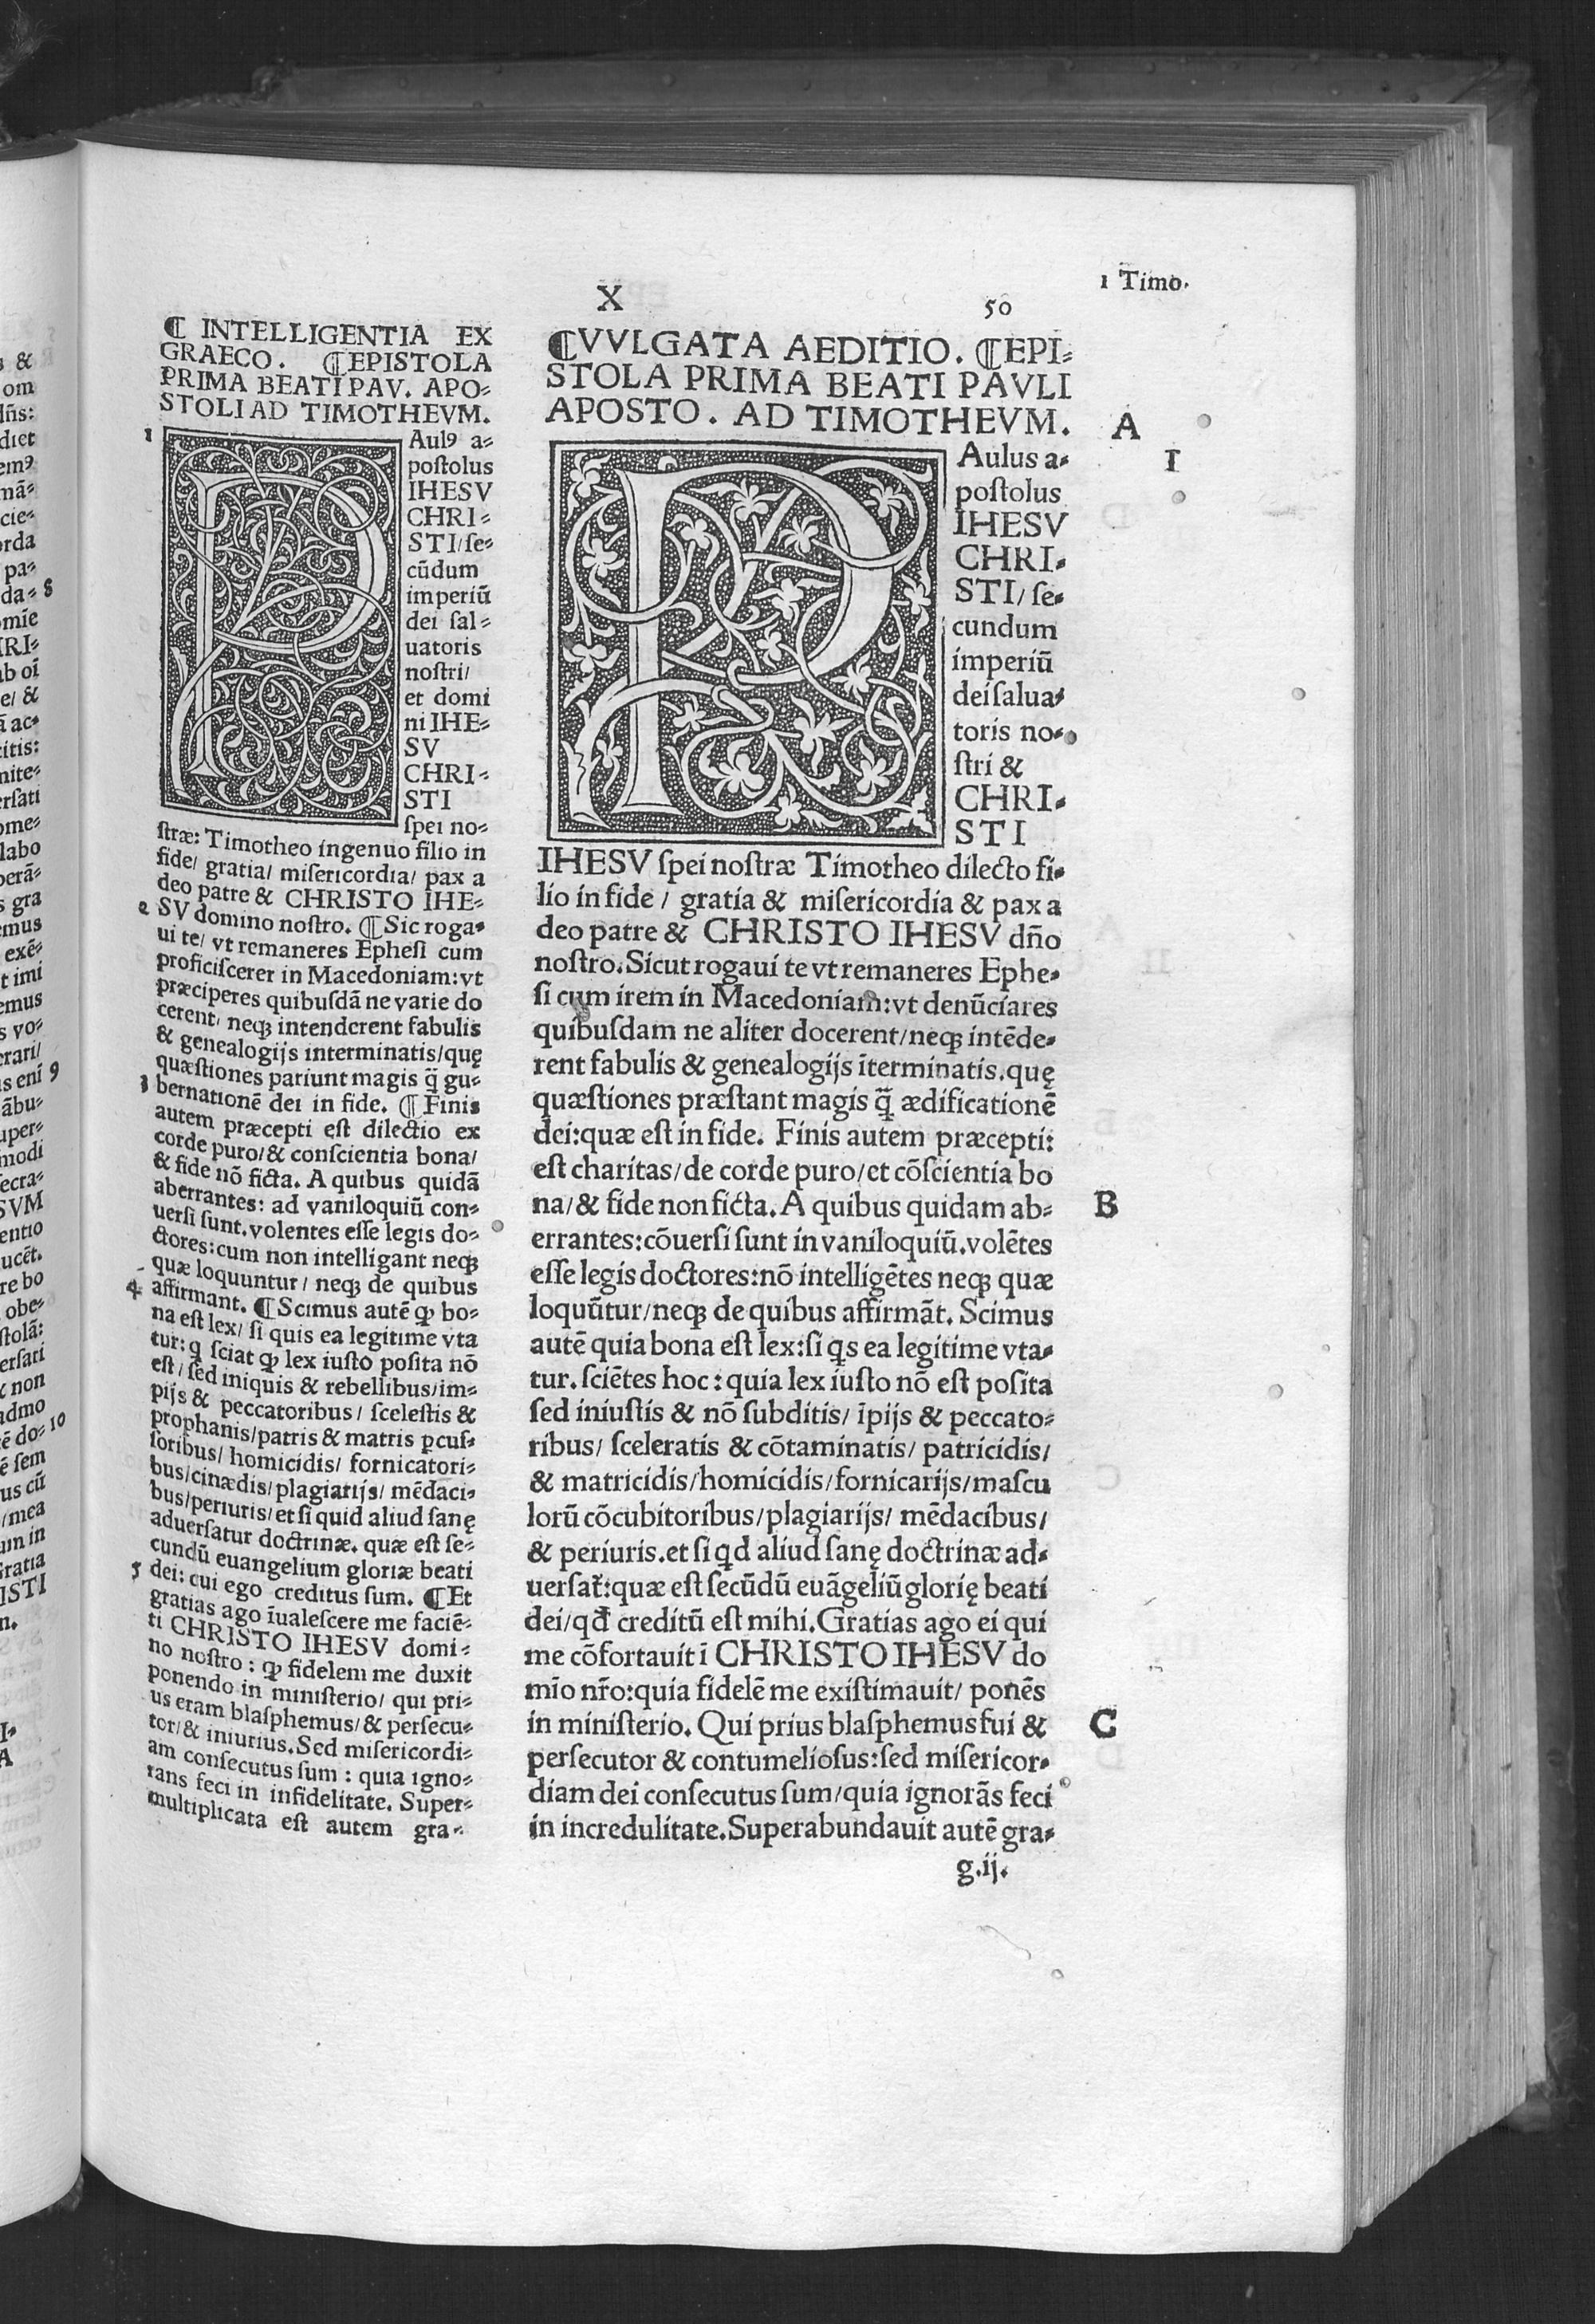 1 Timo.
X
50
¶ INTELLIGENTIA EX
GRAECO. ¶EPISTOLA
PRIMA BEATI PAV. APO-
STOLI AD TIMOTHEVM.
1
PAulꝰ a-
postolus
IHESV
CHRI-
STI/se-
cūdum
imperiū
dei sal-
uatoris
nostri/
et domi
ni IHE-
SV
CHRI-
STI
spei no-
stræ: Timotheo ingenuo filio in
fide/ gratia/ misericordia/ pax a
deo patre & CHRISTO IHE-
2 SV domino nostro. ¶Sic roga-
ui te/ vt remaneres Ephesi cum
proficiscerer in Macedoniam: vt
præciperes quibusdā ne varie do
cerent/ neqꝫ intenderent fabulis
& genealogijs interminatis/quę
quæstiones pariunt magis q̄ gu-
3 bernationē dei in fide. ¶Finis
autem præcepti est dilectio ex
corde puro/& conscientia bona/
& fide nō ficta. A quibus quidā
aberrantes: ad vaniloquiū con-
uersi sunt. volentes esse legis do-
ctores: cum non intelligant neqꝫ
quæ loquuntur/ neqꝫ de quibus
4 affirmant. ¶Scimus autē ꝙ bo-
na est lex/ si quis ea legitime vta
tur: q sciat ꝙ lex iusto posita nō
est/ sed iniquis & rebellibus/im-
pijs & peccatoribus/ scelestis &
prophanis/patris & matris ꝑcus-
soribus/ homicidis/ fornicatori-
bus/cinædis/plagiarijs/ mēdaci-
bus/periuris/et si quid aliud sanę
aduersatur doctrinæ. quæ est se-
cundū euangelium gloriæ beati
5 dei: cui ego creditus sum. ¶Et
gratias ago īualescere me faciē-
ti CHRISTO IHESV domi-
no nostro: ꝙ fidelem me duxit
ponendo in ministerio/ qui pri-
us eram blasphemus/& persecu-
tor/& iniurius. Sed misericordi-
am consecutus sum: quia igno-
rans feci in infidelitate. Super-
multiplicata est autem gra-
¶VVLGATA AEDITIO. ¶EPI-
STOLA PRIMA BEATI PAVLI
APOSTO. AD TIMOTHEVM.
A
I
PAulus a-
postolus
IHESV
CHRI-
STI/ se-
cundum
imperiū
dei salua-
toris no-
stri &
CHRI-
STI
IHESV spei nostræ Timotheo dilecto fi-
lio in fide/ gratia & misericordia & pax a
deo patre & CHRISTO IHESV dño
nostro. Sicut rogaui te vt remaneres Ephe-
si cum irem in Macedoniam: vt denūciares
quibusdam ne aliter docerent/neqꝫ intēde-
rent fabulis & genealogijs īterminatis. quę
quæstiones præstant magis q̄ ædificationē
dei: quæ est in fide. Finis autem præcepti:
est charitas/de corde puro/et cōscientia bo
na/& fide non ficta. A quibus quidam ab-
B
errantes: cōuersi sunt in vaniloquiū. volētes
esse legis doctores: nō intelligētes neqꝫ quæ
loquūtur/neqꝫ de quibus affirmāt. Scimus
autē quia bona est lex: si qs ea legitime vta-
tur. sciētes hoc: quia lex iusto nō est posita
sed iniustis & nō subditis/ īpijs & peccato-
ribus/ sceleratis & cōtaminatis/ patricidis/
& matricidis/homicidis/fornicarijs/mascu
lorū cōcubitoribus/plagiarijs/ mēdacibus/
& periuris. et si qd aliud sanę doctrinæ ad-
uersať: quæ est secūdū euāgeliū glorię beati
dei/qđ creditū est mihi. Gratias ago ei qui
me cōfortauit ī CHRISTO IHESV do
mīo nr̄o: quia fidelē me existimauit/ ponēs
in ministerio. Qui prius blasphemus fui &
C
persecutor & contumeliosus: sed misericor-
diam dei consecutus sum/quia ignorās feci
in incredulitate. Superabundauit autē gra-
g.ij.